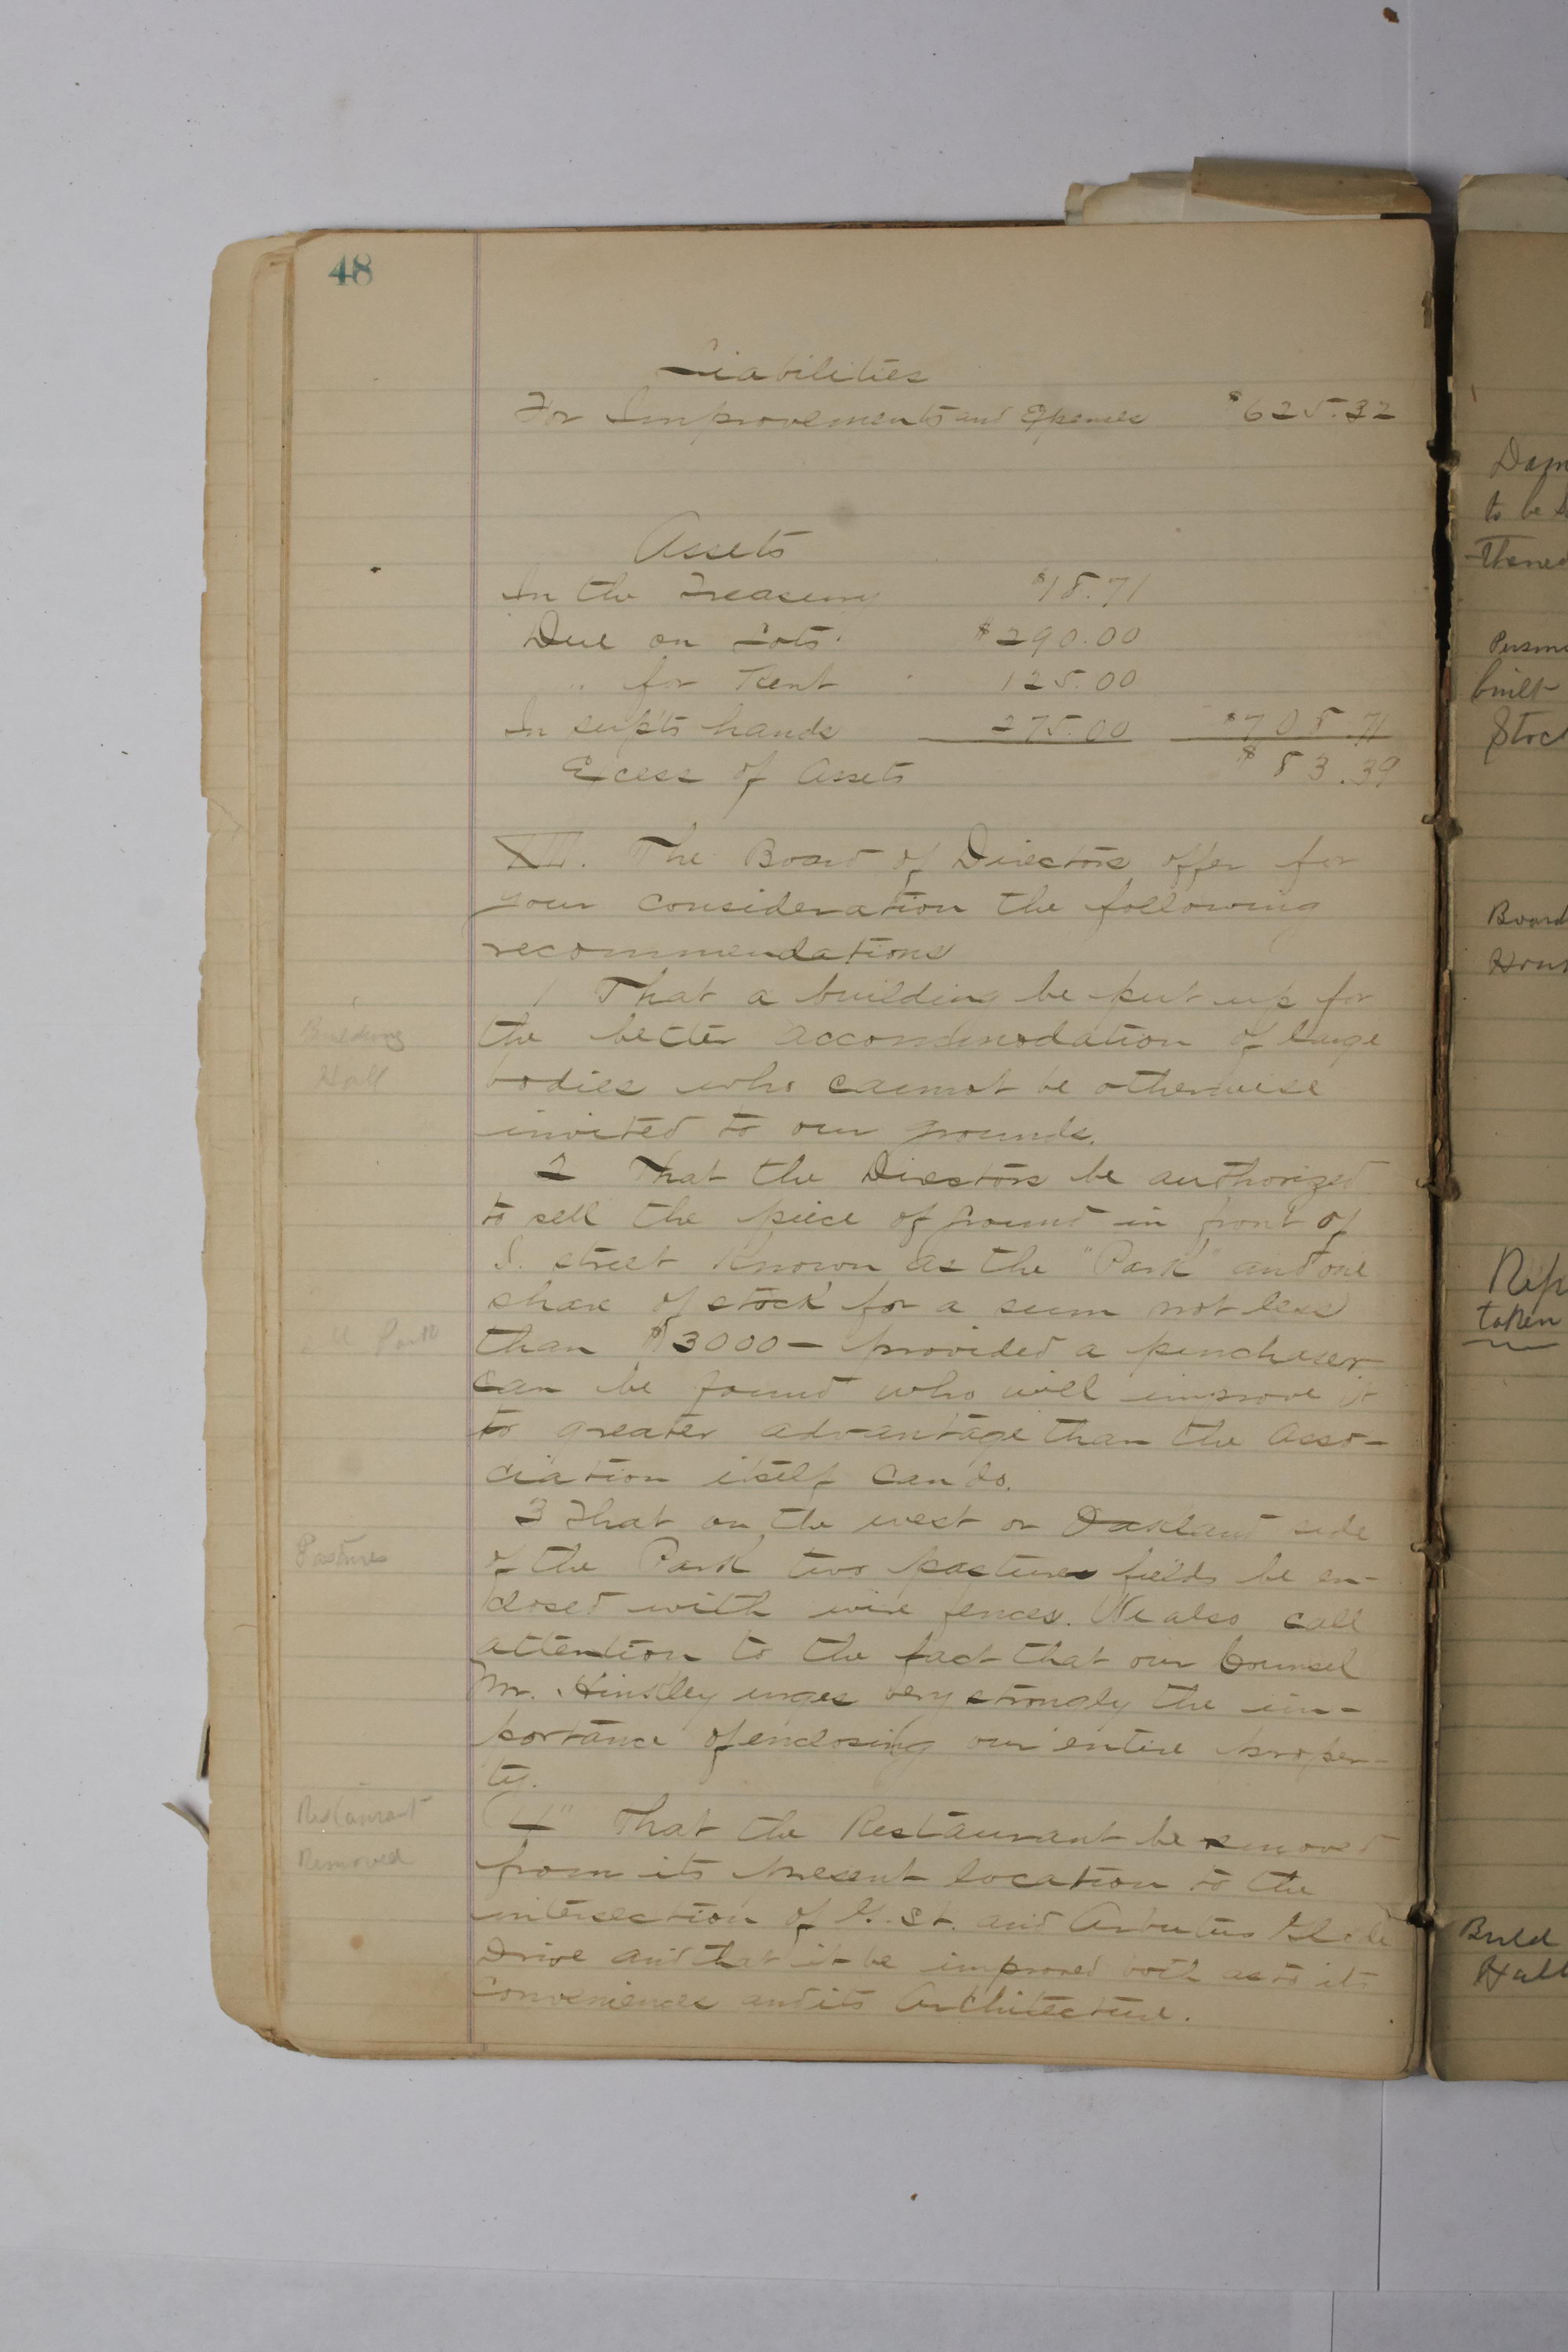 48
Liabilities
For Improvements and Expenses $625.32
Assets
In the Treasury $18.71
Due on Lots $290.00
" for Rent 125.00
In sup'ts hands 275.00 $708.71
Excess of Assets $83.39
XIII. The Board of Directors offer for
your consideration the following
recommendations
1 That a building be put up for
Building
the better accommodation of large
Hall
bodies who cannot be otherwise
invited to our grounds.
2 That the Directors be authorized
to sell the piece of ground in front of
S. street known as the "Park" and one
share of stock for a sum not less
Park
than $3000 — provided a purchaser
can be found who will improve it
to greater advantage than the Asso-
ciation itself can do.
3 That on the west or Oakland side
Pastures
of the Park two pastures fields be en-
closed with wire fences. We also call
attention to the fact that our Counsel
Mr. Hinkley urges very strongly the im-
portance of enclosing our entire proper-
ty.
Restaurant
4" That the Restaurant be removed
Removed
from its present location to the
intersection of St. and Arbutus Glade
Drive and that it be improved both as to its
conveniences and its Architecture.
Dam
to be
Board
Hous
taken
Build
Hall